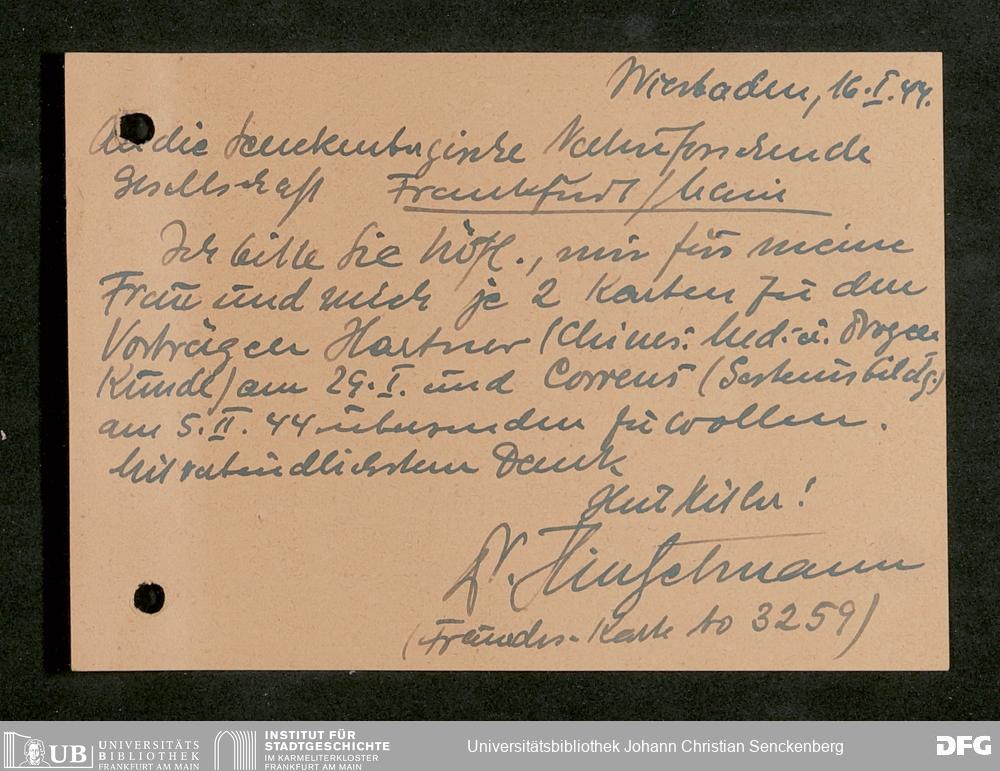 Wiesbaden, 16.I.44.
An die Senckenbergische Naturforschende
Gesellschaft Frankfurt/Main
Ich bitte Sie höfl., mir für meine
Frau und mich je 2 Karten zu den
Vorträgen Hartner (Chines. Med.- u. Drogen
Kunde) am 29.I. und Correns
am 5.II.44 übersenden zu wollen.
Mit verbindlichstem Dank
Heil Hitler!
Dr.
(Freundes-Karte No 3259)
UB UNIVERSITÄTS
BIBLIOTHEK
FRANKFURT AM MAIN
INSTITUT FÜR
STADTGESCHICHTE
IM KARMELITERKLOSTER
FRANKFURT AM MAIN
Universitätsbibliothek Johann Christian Senckenberg
DFG